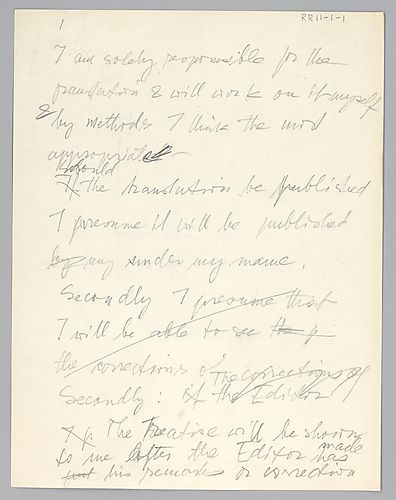 RR11-1-1
1
I am solely responsible for the
translation & will work on it myself
& by methods I think the most
appropriate
Should
If the translation be published
I presume it will be published
by my under my name.
Secondly I presume that
I will be able to see the
the corrections of The corrections of
Secondly: if the Editor
The Treatise will be shown
to me after the Editor has made
his remarks or correction